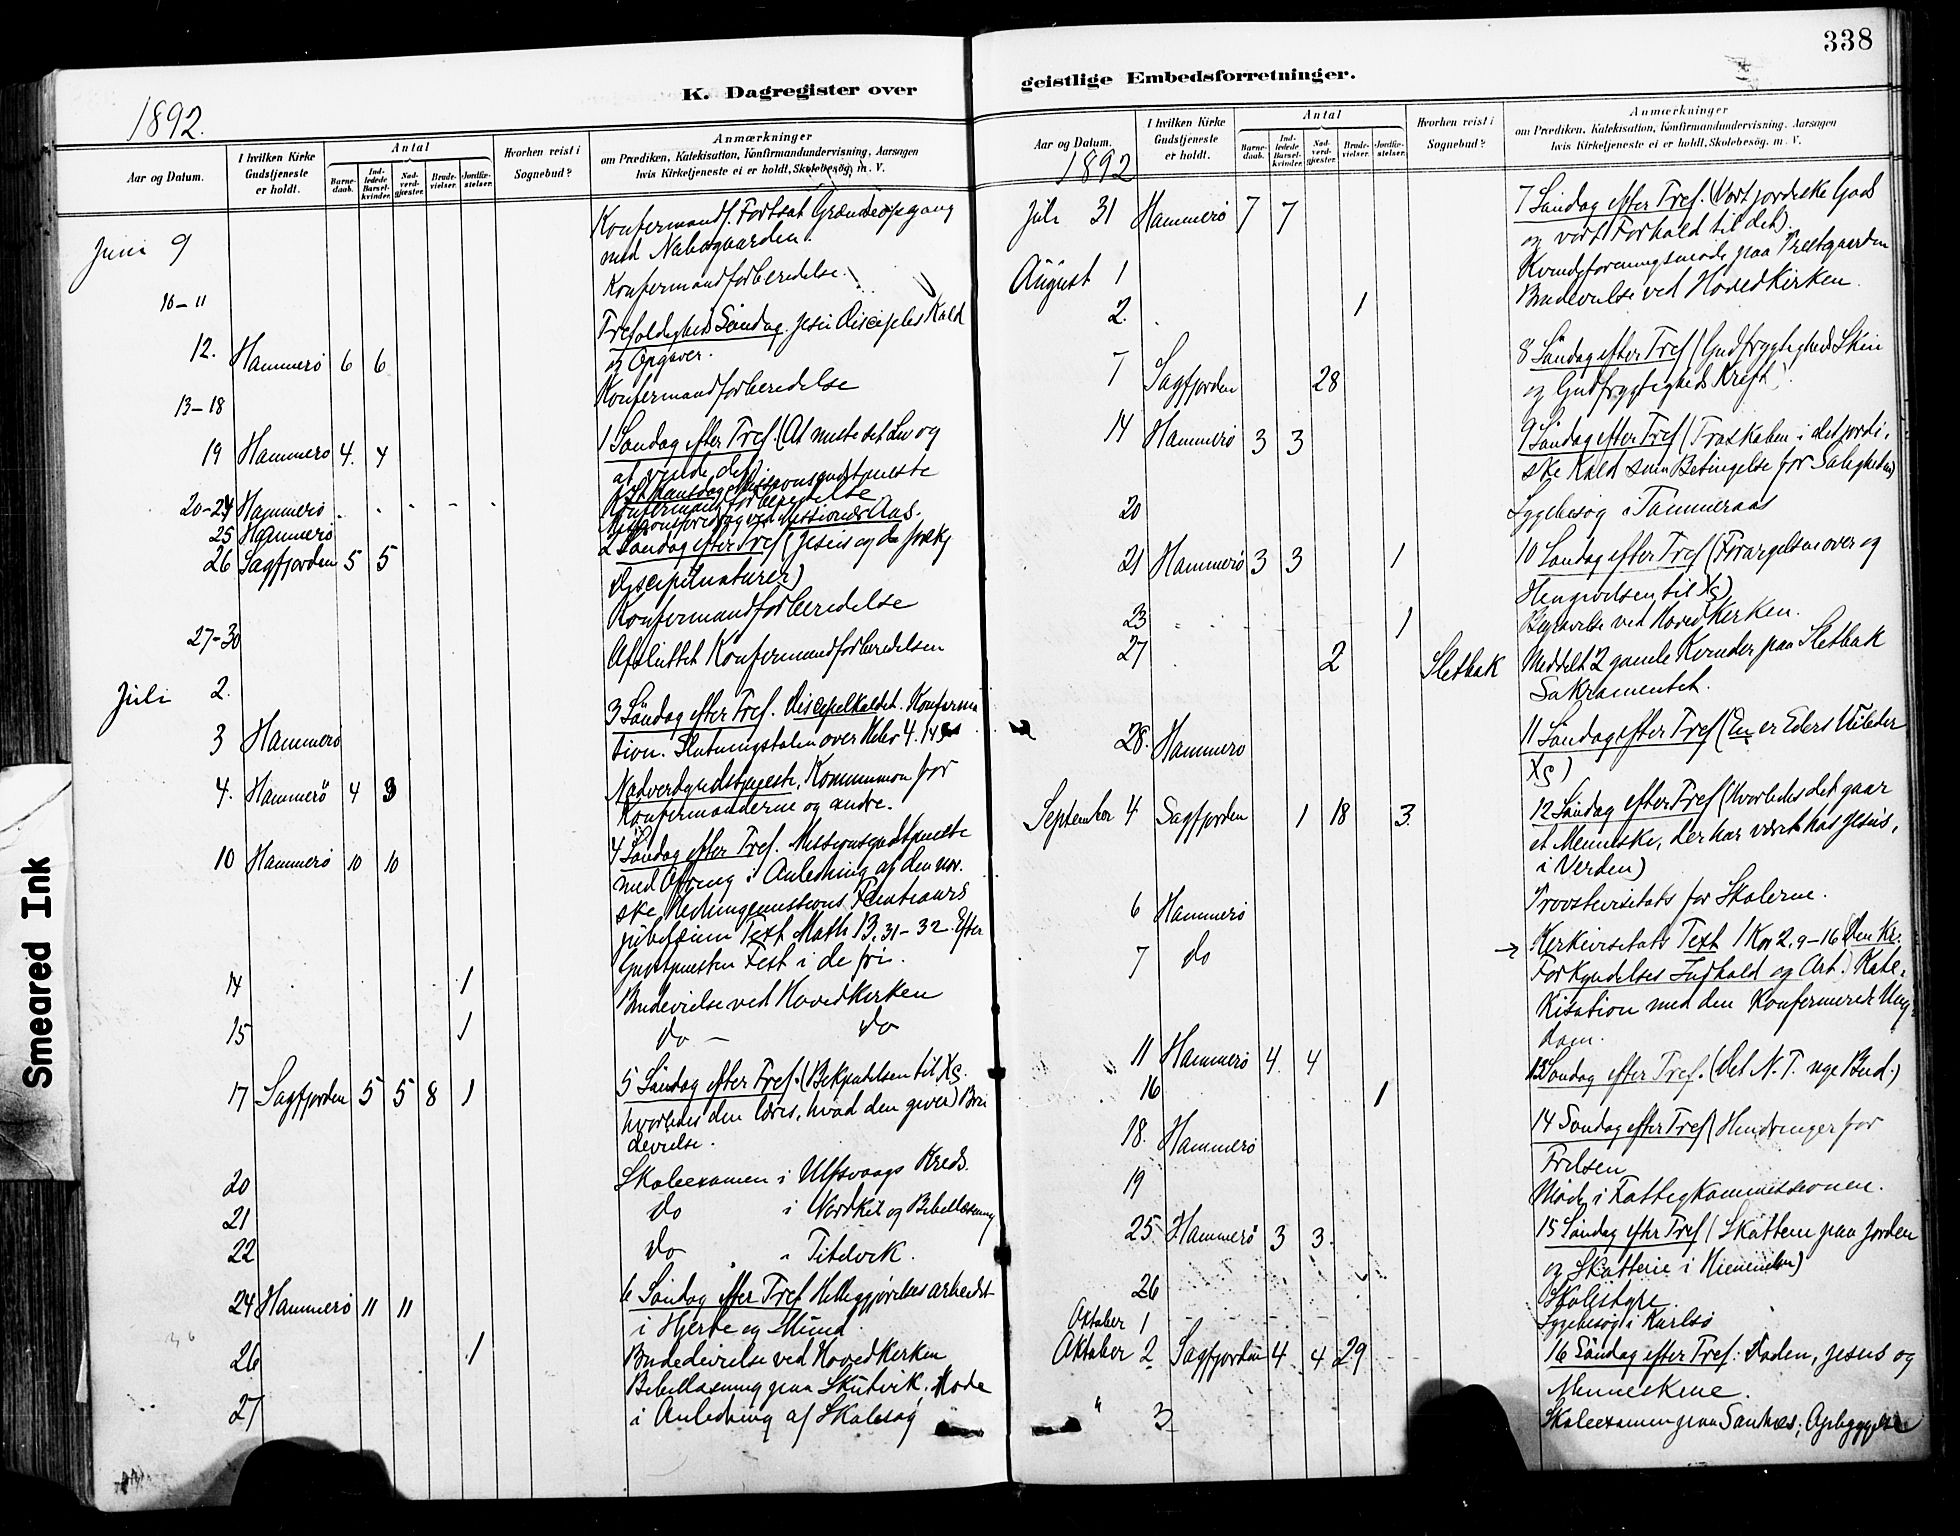 338
K. Dagregister over
geistlige Embedsforretninger.
1892.
Aar og Datum.
I hvilken Kirke Gudstjeneste er holdt.
Antal
Barnedaab.
Indledede Barselkvinder.
Nadverdgjester.
Brudevielser.
Jordfæstelser.
Hvorhen reist i Sognebud?
Anmærkninger
om Prædiken, Katekisation, Konfirmandundervisning, Aarsagen
hvis Kirketjeneste ei er holdt, Skolebesøg, m. V.
Juni 9
Konfermandf. Fortsat Grændseopgang
med Nabogaarden.
10-11
Konfermandforberedelse.
12. Hammerø 6 6
Trefoldigheds Søndag. Jesu Disciples Kald
og Opgaver.
13-18
Konfermandforberedelse
19 Hammerø 4. 4
1 Søndag efter Tref. (At miste det Liv og
at vinde det)
20-24 Hammerø
St. Hansdag Missionsgudstjeneste
Konfermandforberedelse
25 Hammerø
Missionsforedrag ved Missionær Aas.
26 Sagfjorden 5 5
2 Søndag efter Tref (Jesus og de
Discipelnaturer)
27-30
Konfermandforberedelse
Juli 2.
Afsluttet Konfermandforberedelsen
3 Hammerø
3 Søndag efter Tref. Discipelkaldet. Konferma
tion. Slutningstalen over Hebr 4. 14
4. Hammerø 4 3
Nadverdgudstjeneste, Kommunion for
Konfermanderne og andre.
10 Hammerø 10 10
4 Søndag efter Tref. Missionsgudstjeneste
med Ofring i Anledning af den nor.
ske Hedningemissions Femtiaars
jubelæum Text Math 13, 31-32. Efter
Gudstjenesten Fest i de fri.
14 1
Brudevielse ved Hovedkirken
15 1
do - do
17 Sagfjorden 5 5 8 1
5 Søndag efter Tref. (Bekjendelsen til Xs.
hvorledes den læres, hvad den giver) Bru
devielse.
20
Skoleexamen i Ulfsvaags Kreds.
21
do i Nordkil og Bibellæsning
22
do " Titelvik.
24 Hammerø 11 11
6 Søndag efter Tref Helliggjørelses arbeidet
i Hjerte og Mund
26 1
Brudevielse ved Hovedkirken
27
Bibellæsning paa Skutvik. Møde
i Anledning af Skolesag
Aar og Datum.
1892
I hvilken Kirke Gudstjeneste er holdt.
Antal
Barnedaab.
Indledede Barselkvinder.
Nadverdgjester.
Brudevielser.
Jordfæstelser.
Hvorhen reist i Sognebud?
Anmærkninger
om Prædiken, Katekisation, Konfirmandundervisning, Aarsagen
hvis Kirketjeneste ei er holdt, Skolebesøg, m. V.
Juli 31 Hammerø 7 7
7 Søndag efter Tref. (Vort jordiske Gods
og vort Forhold til det).
August 1
Kvindeforeningsmøde paa Prestgaarden
2. 1
Brudevielse ved Hovedkirken.
7 Sagfjorden 28
8 Søndag efter Tref (Gudfrygtigheds Skin
og Gudfrygtigheds Kraft).
14 Hammerø 3 3
9 Søndag efter Tref (Troskaben i det jordi.
ske Kald som Betingelse for Saligheden)
20
Sygebesøg i Tømmeraas
21 Hammerø 3 3 1
10 Søndag efter Tref (Forargelsen over og
Hengivelsen til Xs)
23 1
Begravelse ved Hovedkirken.
27 2 Sletbak
Meddelt 2 gamle Kvinder paa Sletbak
Sakramentet.
28. Hammerø
11 Søndag efter Tref (En er Eders Veileder
Xs)
September 4 Sagfjorden 1 18 3.
12 Søndag efter Tref (Hvorledes det gaar
et Menneske, der har været hos Jesus,
i Verden)
6 Hammerø
Provstevisitats for Skolerne.
7 do
Kirkevisitats Text 1 Kor 2, 9-16 (Den Kr.
Forkyndelses Indhold og Art.) Kate.
kisation med den Konfermerede Ung
dom.
11 Hammerø 4. 4
13 Søndag efter Tref. (Det N. T. nye Bud.)
16 1
18. Hammerø
14 Søndag efter Tref (Hindringer for
Frelsen
19
Møde i Fattigkommissionen.
25 Hammerø 3 3.
15 Søndag efter Tref (Skatten paa Jorden
og Skatten i Himmelen)
26
Skolestyre.
Oktober 1
Sygebesøg i Karlsø
Oktober 2 Sagfjorden 4 4 29
16 Søndag efter Tref: Døden, Jesus og
Menneskene.
" 3
Skoleexamen paa Sandnes;
Smeared Ink